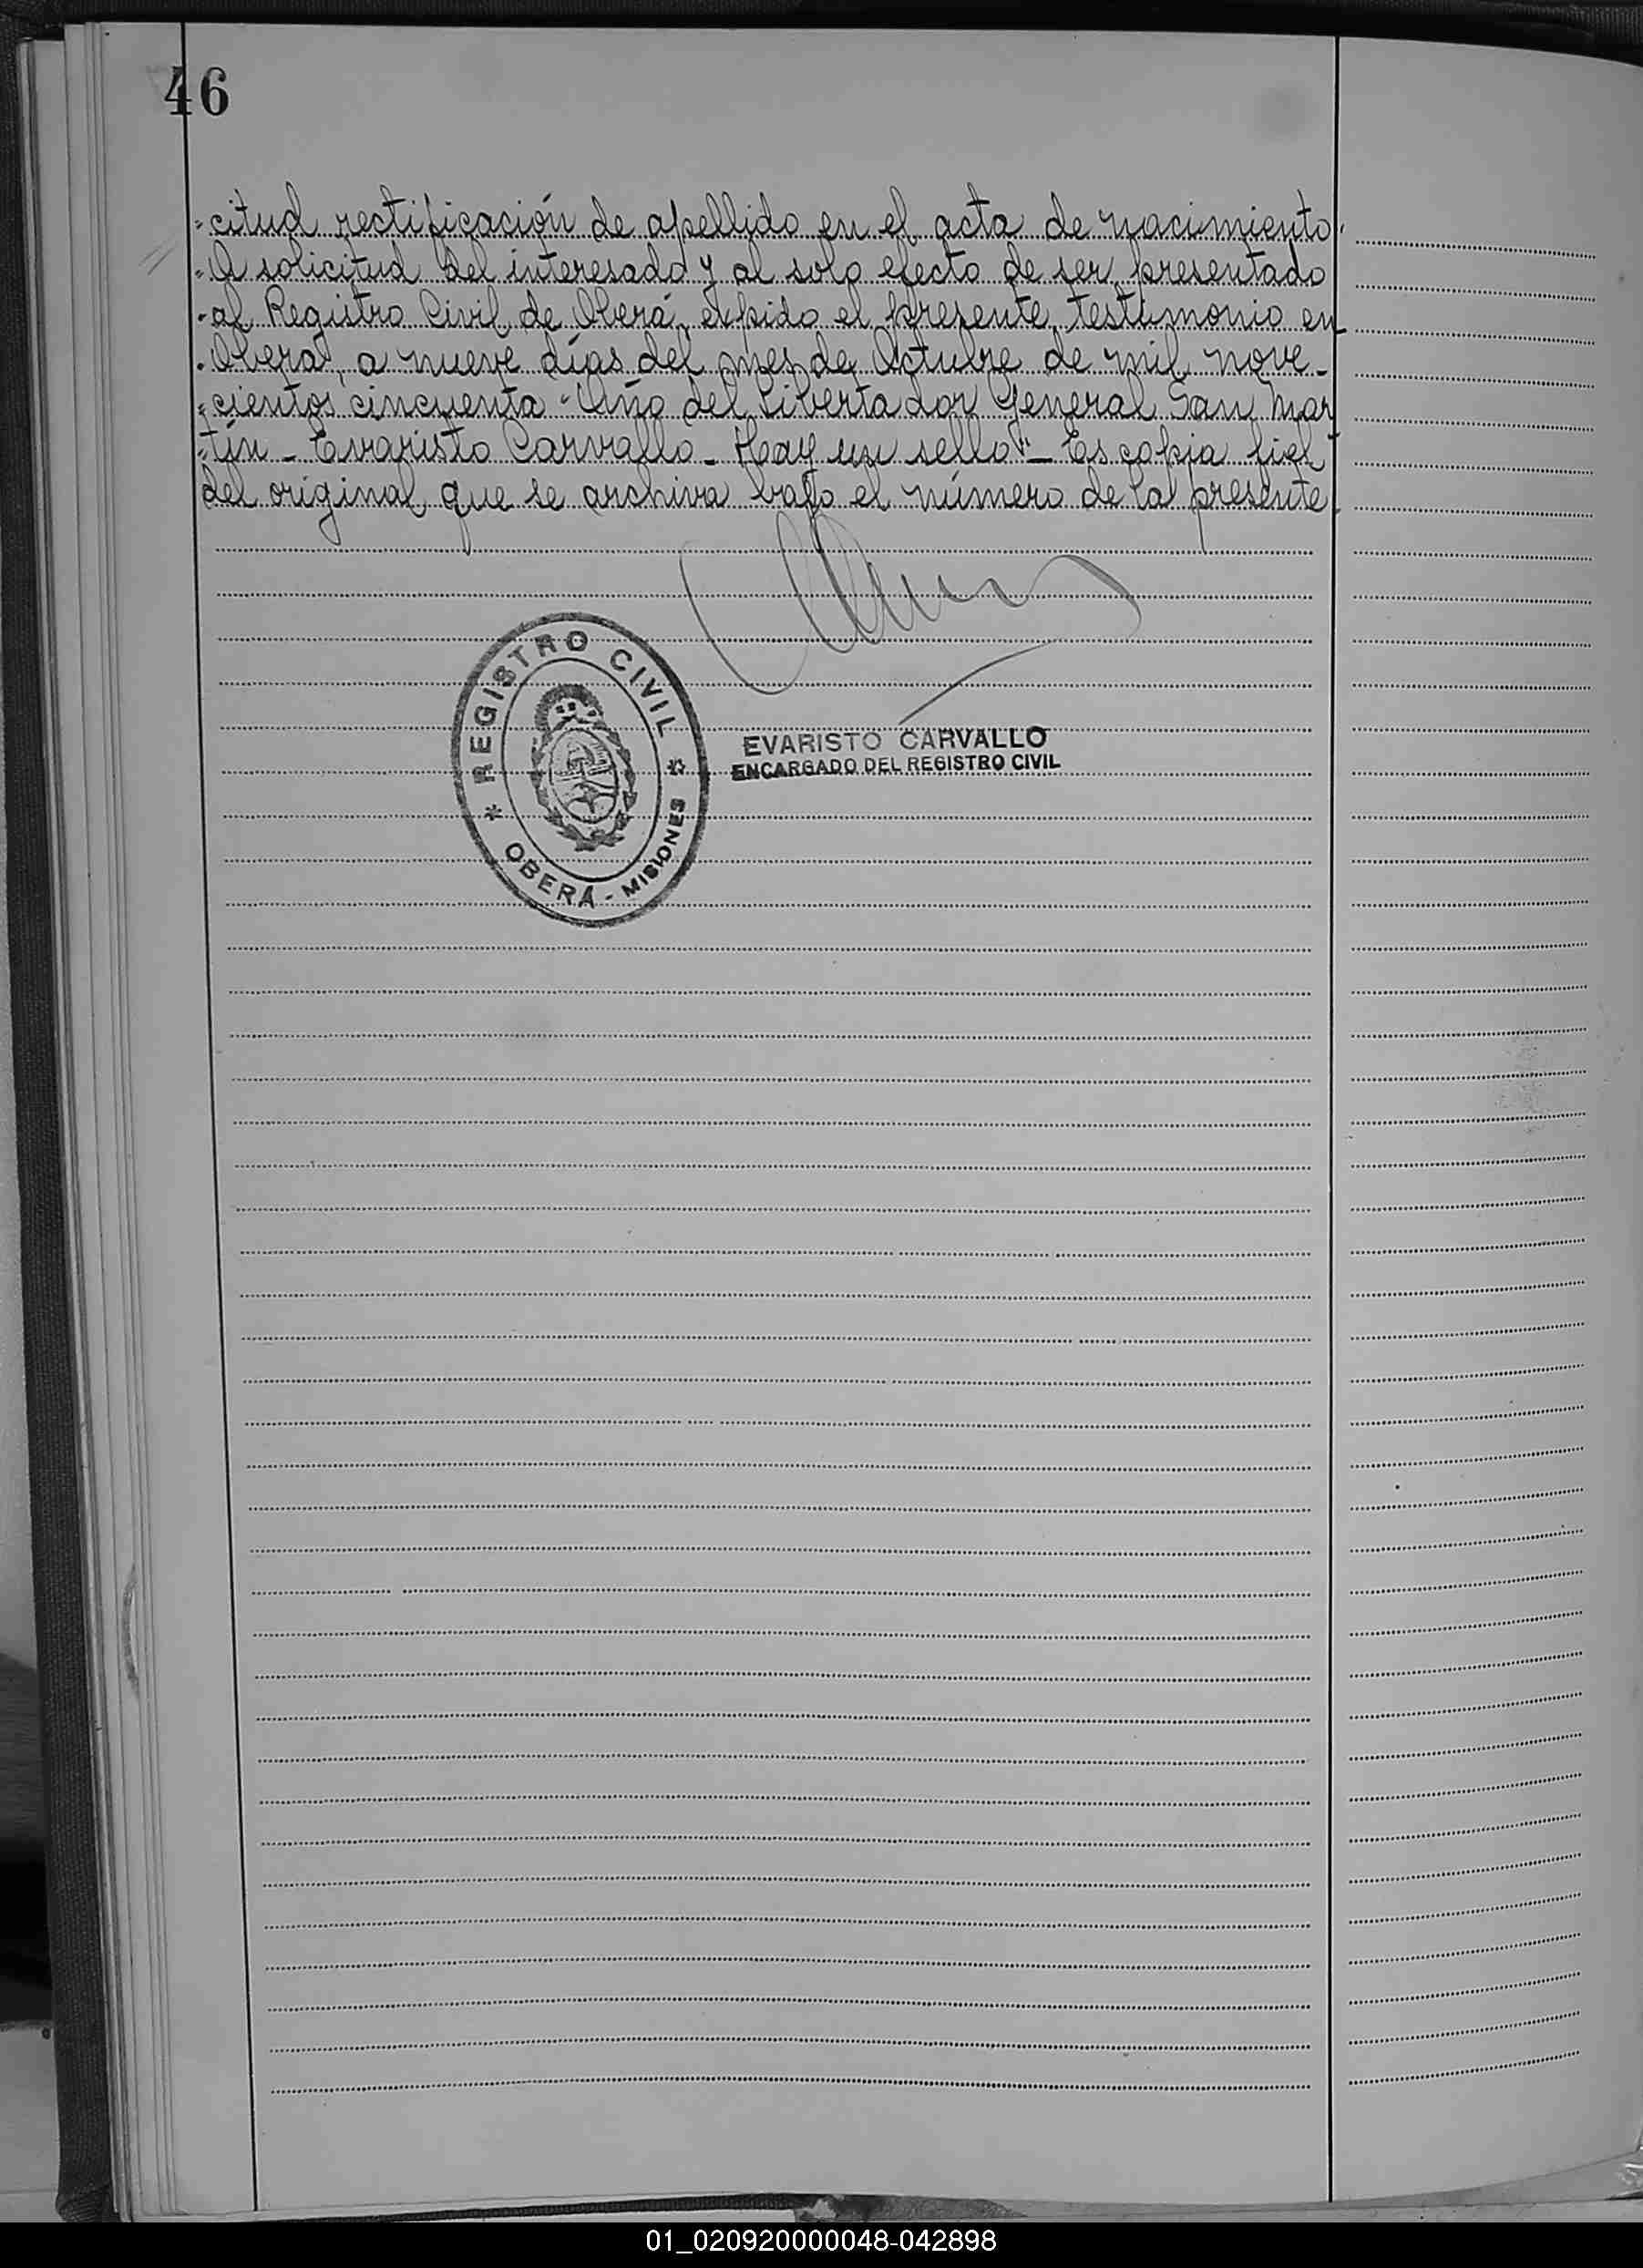 46
"citud rectificación de apellido en el acta de nacimiento.
"A solicitud del interesado y al solo efecto de ser presentado
"al Registro Civil de Oberá, expido el presente testimonio en
"Oberá, a nueve días del mes de Octubre de mil nove-
"cientos cincuenta "Año del Libertador General San Mar
"tín - Evaristo Carvallo - Hay un sello" - Es copia fiel
del original que se archiva bajo el número de la presente.
REGISTRO CIVIL
OBERÁ - MISIONES
EVARISTO CARVALLO
ENCARGADO DEL REGISTRO CIVIL
01_020920000048-042898